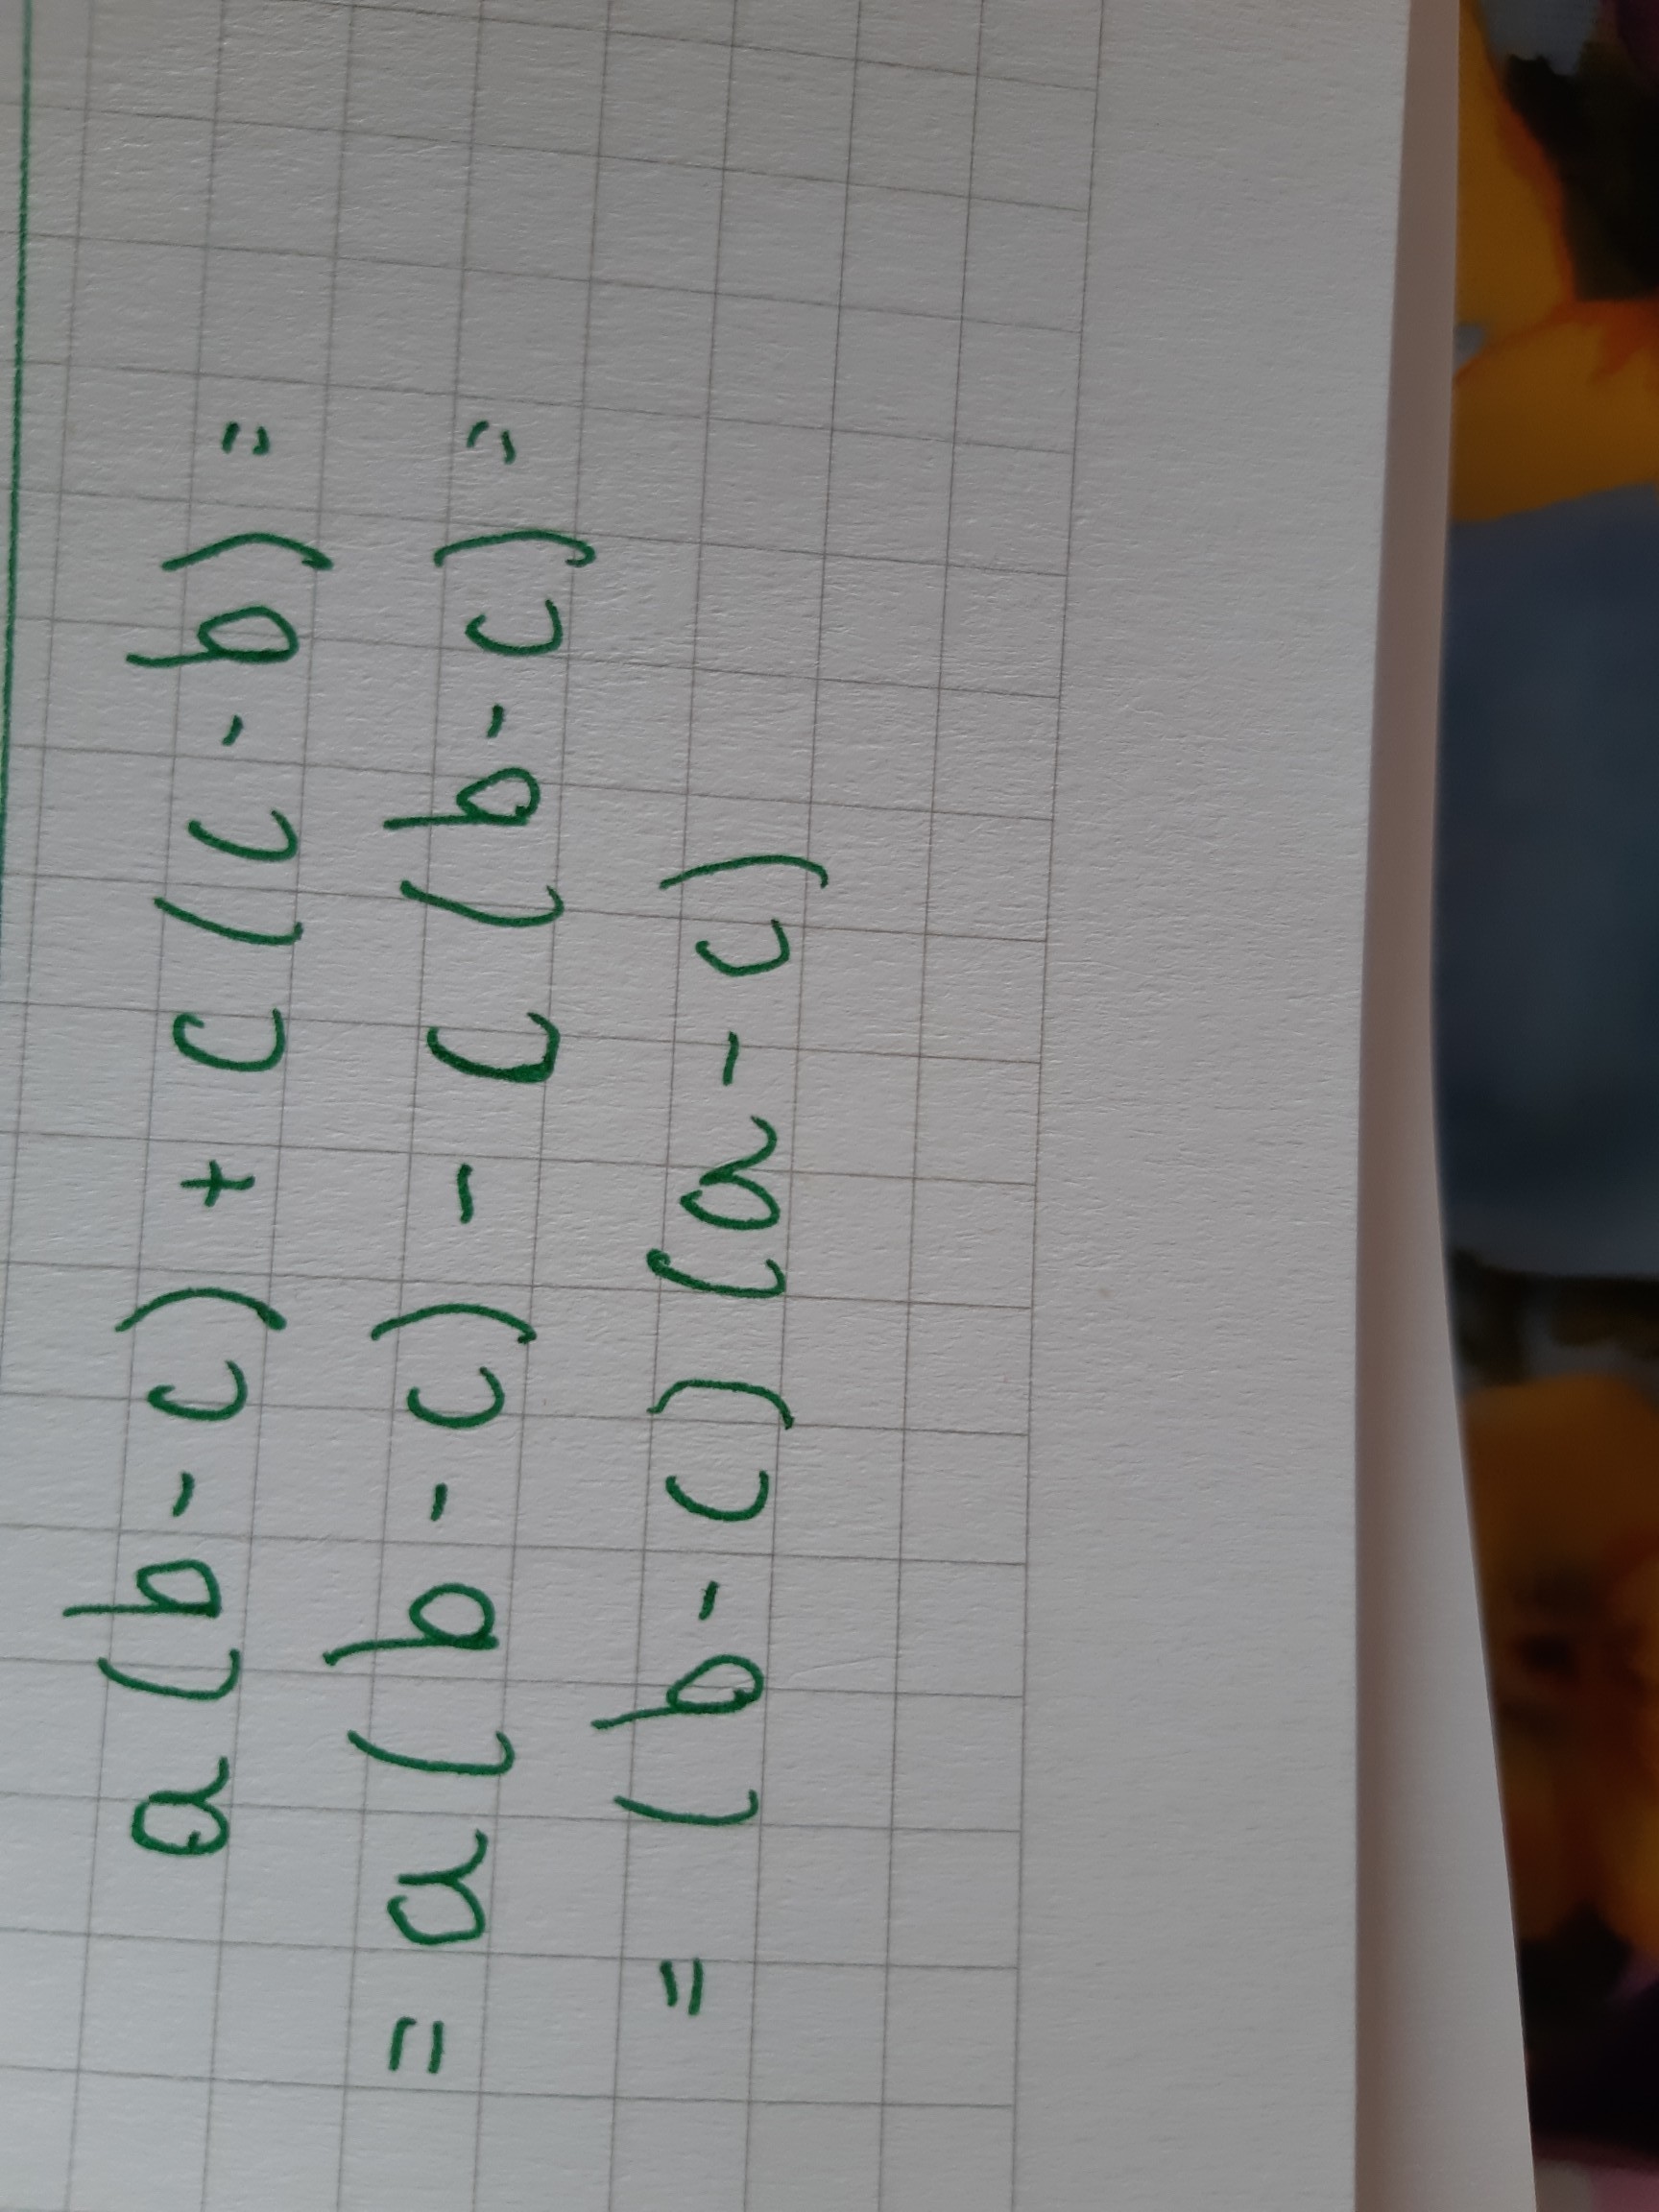 a(b-c) + c(c-b) =
= a(b-c) - c(b-c) =
= (b-c)(a-c)